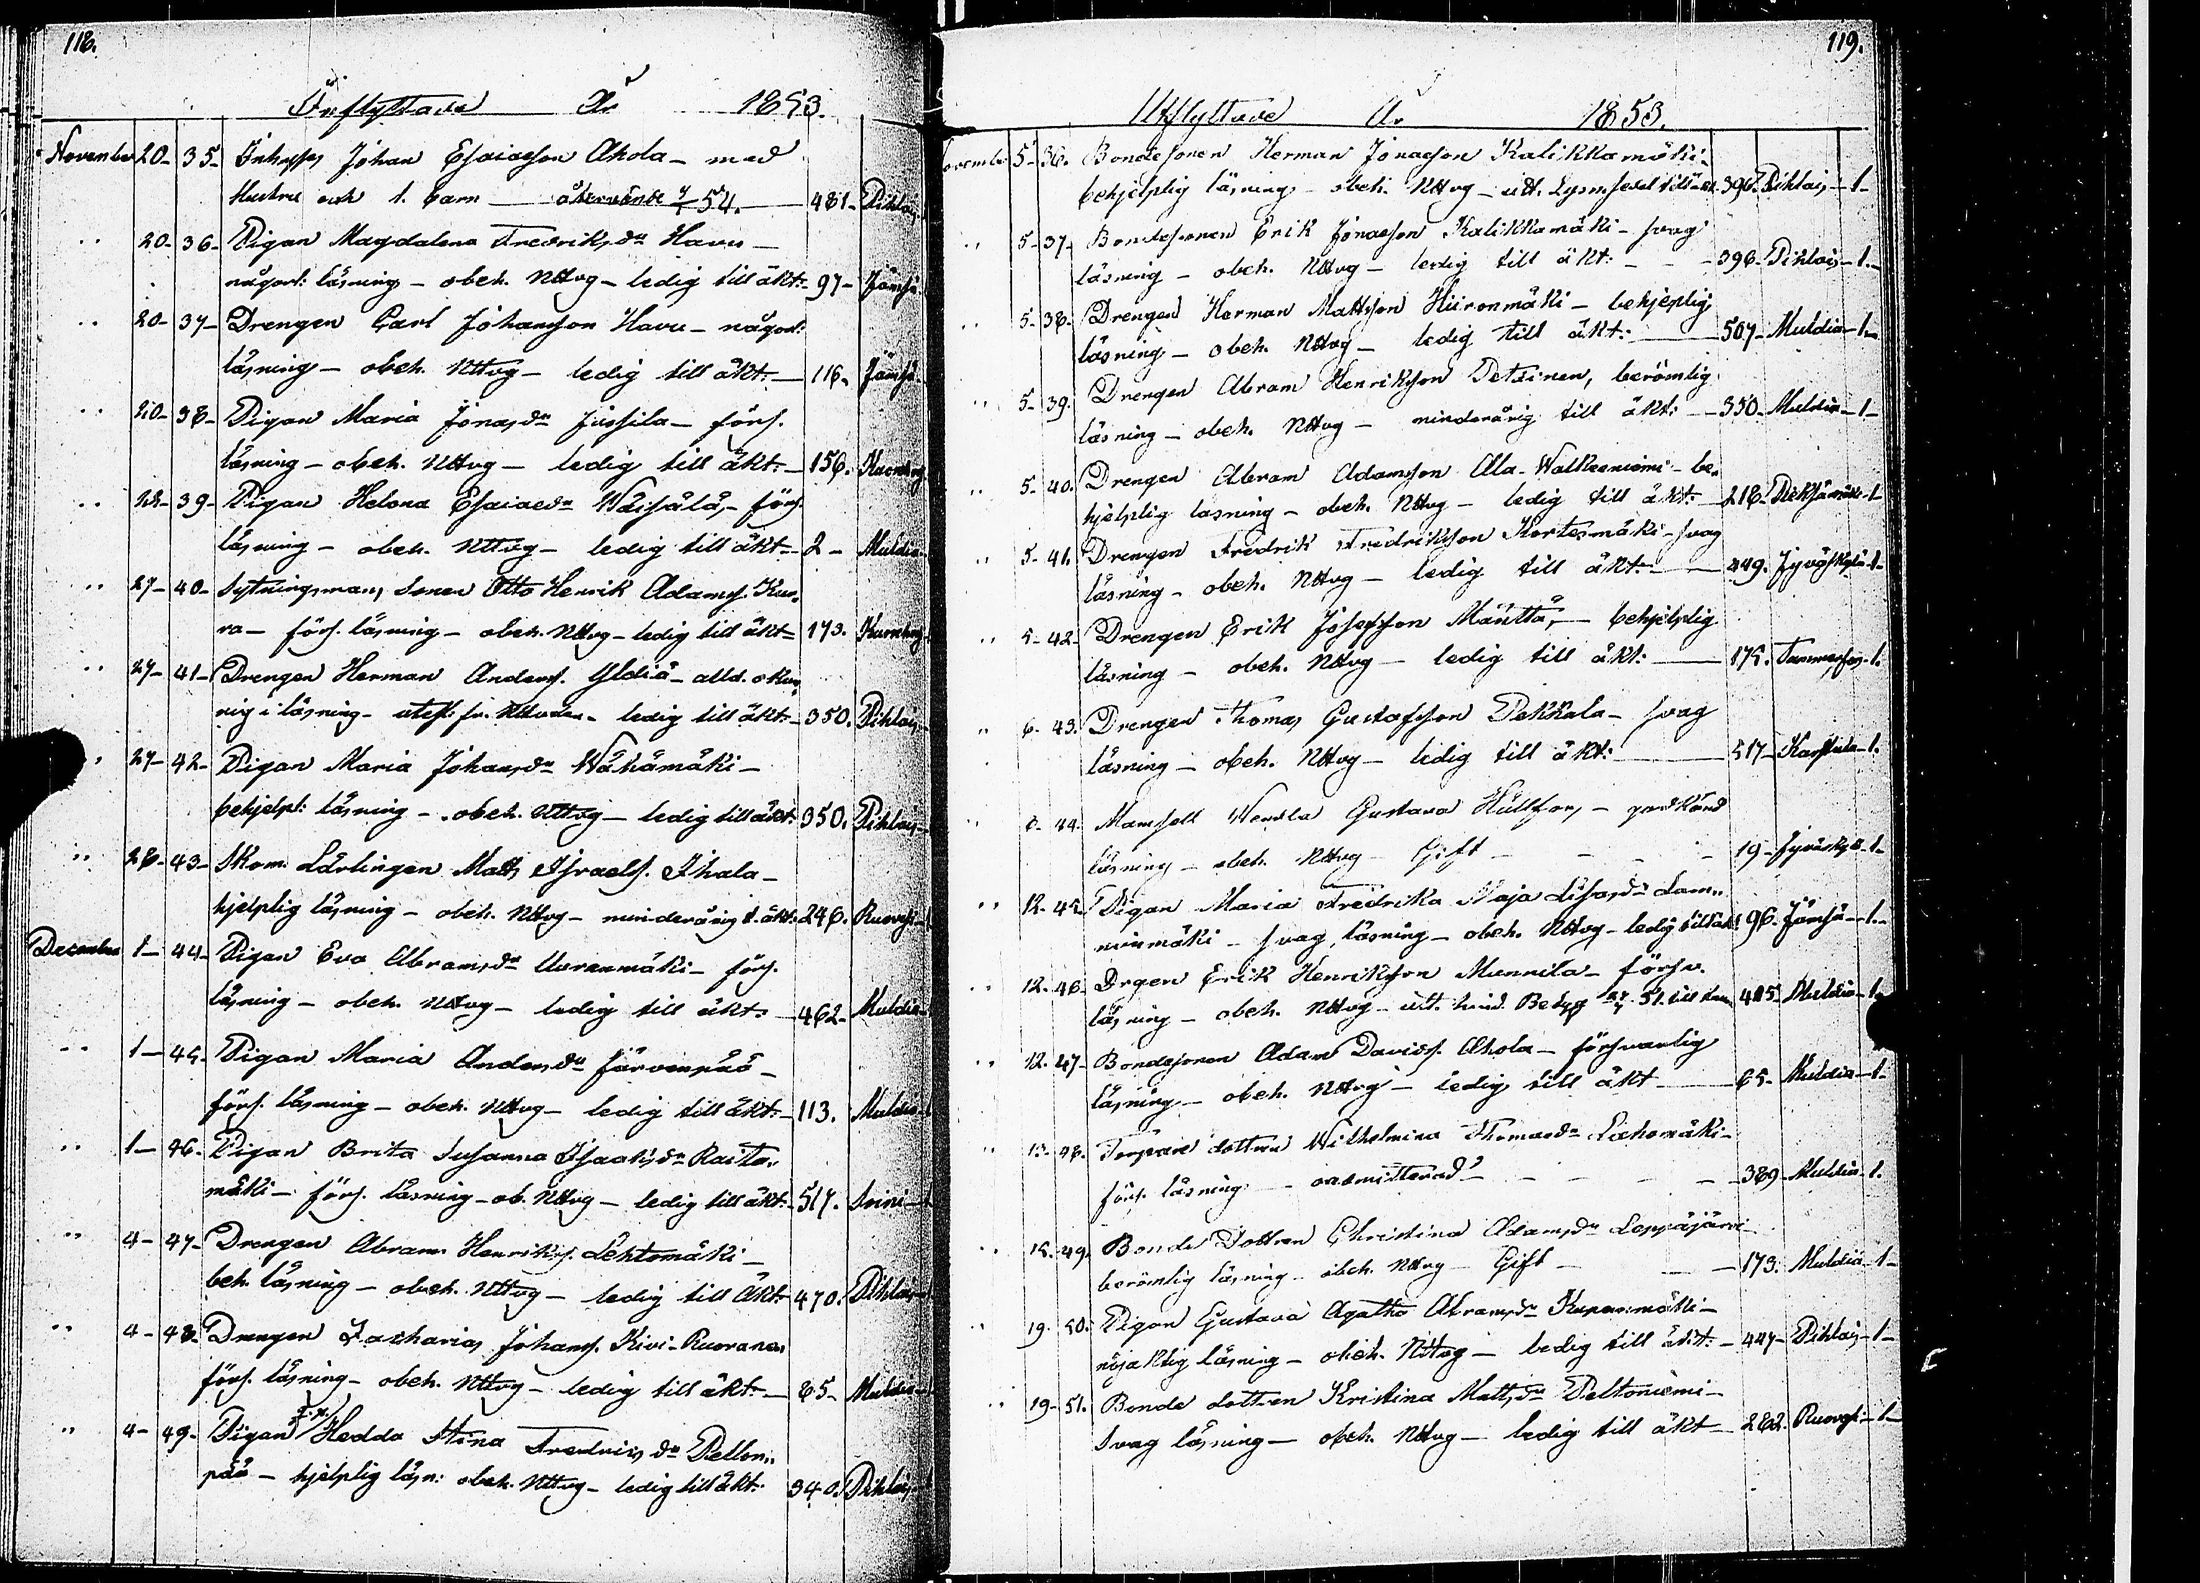 118.
Inflyttade År 1853.
November 20- 35- Inhyses Johan Esaiasson Ahola - med
Hustru och 1. barn - återvände 54. - 481- Pihlaj.
" 20- 36- Pigan Magdalena Fredriksdr Havu -
någorl: läsning - obeh. Nttvg - ledig till äkt:- 97- Jämsä
" 20- 37- Drengen Carl Johansson Havu - någorl:
läsning - obeh. Nttvg - ledig till äkt:- 116. Jämsä
" 20- 38- Pigan Maria Jonasdr Jussila - förs.
läsning - obeh. Nttvg - ledig till äkt:- 156.
" 39- Pigan Helena Esaiaedr Wäisälä, - förs.
läsning - obeh. Nttvg - ledig till äkt:- 2- Muldia
" 27- 40- Sytningsmans Sonen Otto Henrik Adamss. Kuo„
ra - förs. läsning - obeh. Nttvg - ledig till äkt:- 173.
" 27- 41- Drengen Herman Anderss. Yldiä - alld. okun„
nig i läsning - utesl: fr. Nttvden - ledig till äkt:- 350. Pihlaj.
" 27- 42- Pigan Maria Johansdr Wähämäki -
behjelpl: läsning - obeh. Nttvg - ledig till äkt: 350. Pihlaj.
" 28- 43- Skom. Lärlingen Matts Israelss. Ihala -
hjelplig läsning - obeh. Nttvg - minderårig t. äkt: 246. Ruovesi
December 1- 44- Pigan Eva Abramsdr Uuranmäki - förs.
läsning - obeh. Nttvg - ledig till äkt:- 462- Muldia
" 1- 45. Pigan Maria Andersdr Järvenpää -
förs. läsning - obeh. Nttvg - ledig till äkt:- 113. Muldia
" 1- 46. Pigan Brita Susanna Isaaksdr Rasto„
mäki - förs. läsning - ob. Nttvg - ledig till äkt:- 517.
" 4- 47- Drengen Abram Henrikss. Lehtomäki -
beh. läsning - obeh. Nttvg - ledig till äkt:- 470. Pihlaj.
" 4- 48. Drengen Zacharias Johanss. Kivi-Ruoranen
förs. läsning - obeh. Nttvg - ledig till äkt:- 65- Muldia
" 4- 49- Pigan Hedda Stina Fredriksdr Pellon„
pää - hjelplig läsn: obeh. Nttvg - ledig till äkt: 340. Pihlaj.
119.
Utflyttade År 1853.
November 5- 36. Bondesonen Herman Jonasson Kalikkamäki -
behjelplig läsning - obeh. Nttvg - utt. Lysnsedel till äkt. 396. Pihlaj. - 1-
" 5- 37- Bondesonen Erik Jonasson Kalikkamäki - svag
läsning - obeh. Nttvg - ledig till äkt: - - 396- Pihlaj. - 1-
" 5- 38- Drengen Herman Mattsson Hiironmäki - behjelplig
läsning - obeh. Nttvg - ledig till äkt: - 507- Muldia - 1-
" 5- 39. Drengen Abram Henriksson Petäinen, berömlig
läsning - obeh. Nttvg - minderårig till äkt: - 350- Muldia - 1-
" 5- 40. Drengen Abram Adamsson Ala-Walkeeniemi - be„
hjelplig läsning - obeh. Nttvg - ledig till äkt:- 218- Pieksämäki - 1-
" 5- 41. Drengen Fredrik Fredriksson Kortesmäki - svag
läsning - obeh. Nttvg - ledig till äkt: - 449. Jyväskylä - 1-
" 5- 42. Drengen Erik Josefsson Mänttä, - behjelplig
läsning - obeh. Nttvg - ledig till äkt: - 175. Tammerfors - 1.
" 6- 43. Drengen Thomas Gustafsson Pekkala - svag
läsning - obeh. Nttvg - ledig till äkt: - 517- Karstula - 1.
" 6- 44. Mamsell Wendla Gustava Hüllfors, - godkänd
läsning - obeh. Nttvg - Gift - - - 19- Jyväskylä - 1-
" 12- 45. Pigan Maria Fredrika Maja Lisasdr Lam„
minmäki - svag, läsning - obeh. Nttvg - ledig till äkt: 96. Jämsä - 1-
" 12- 46. Drgen Erik Henriksson Munnila - försv.
läsning - obeh. Nttvg - utt. hind. Betyg 51. till 405. Muldia - 1-
" 12. 47- Bondesonen Adam Davidss. Ahola - försvarlig
läsning - obeh. Nttvg - ledig till äkt - 65- Muldia - 1-
" 13- 48. Torpare dottren Wilhelmina Thomaedr Lahomäki -
förs. läsning - oadmitterad - - - - 389- Muldia - 1.
" 15. 49. Bonde Dottren Christina Adamsdr Leppäjärvi -
berömlig läsning - obeh. Nttvg - Gift - - - 173. Muldia - 1-
" 19. 50. Pigan Gustava Agatha Abramsdr Kuparinmäki -
nöjaktig läsning - obeh. Nttvg - ledig till äkt: - 447- Pihlaj. - 1-
" 19- 51. Bonde dottren Kristina Mattsdr Peltoniemi -
Svag läsning - obeh. Nttvg - ledig till äkt - 282. Ruovesi - 1-